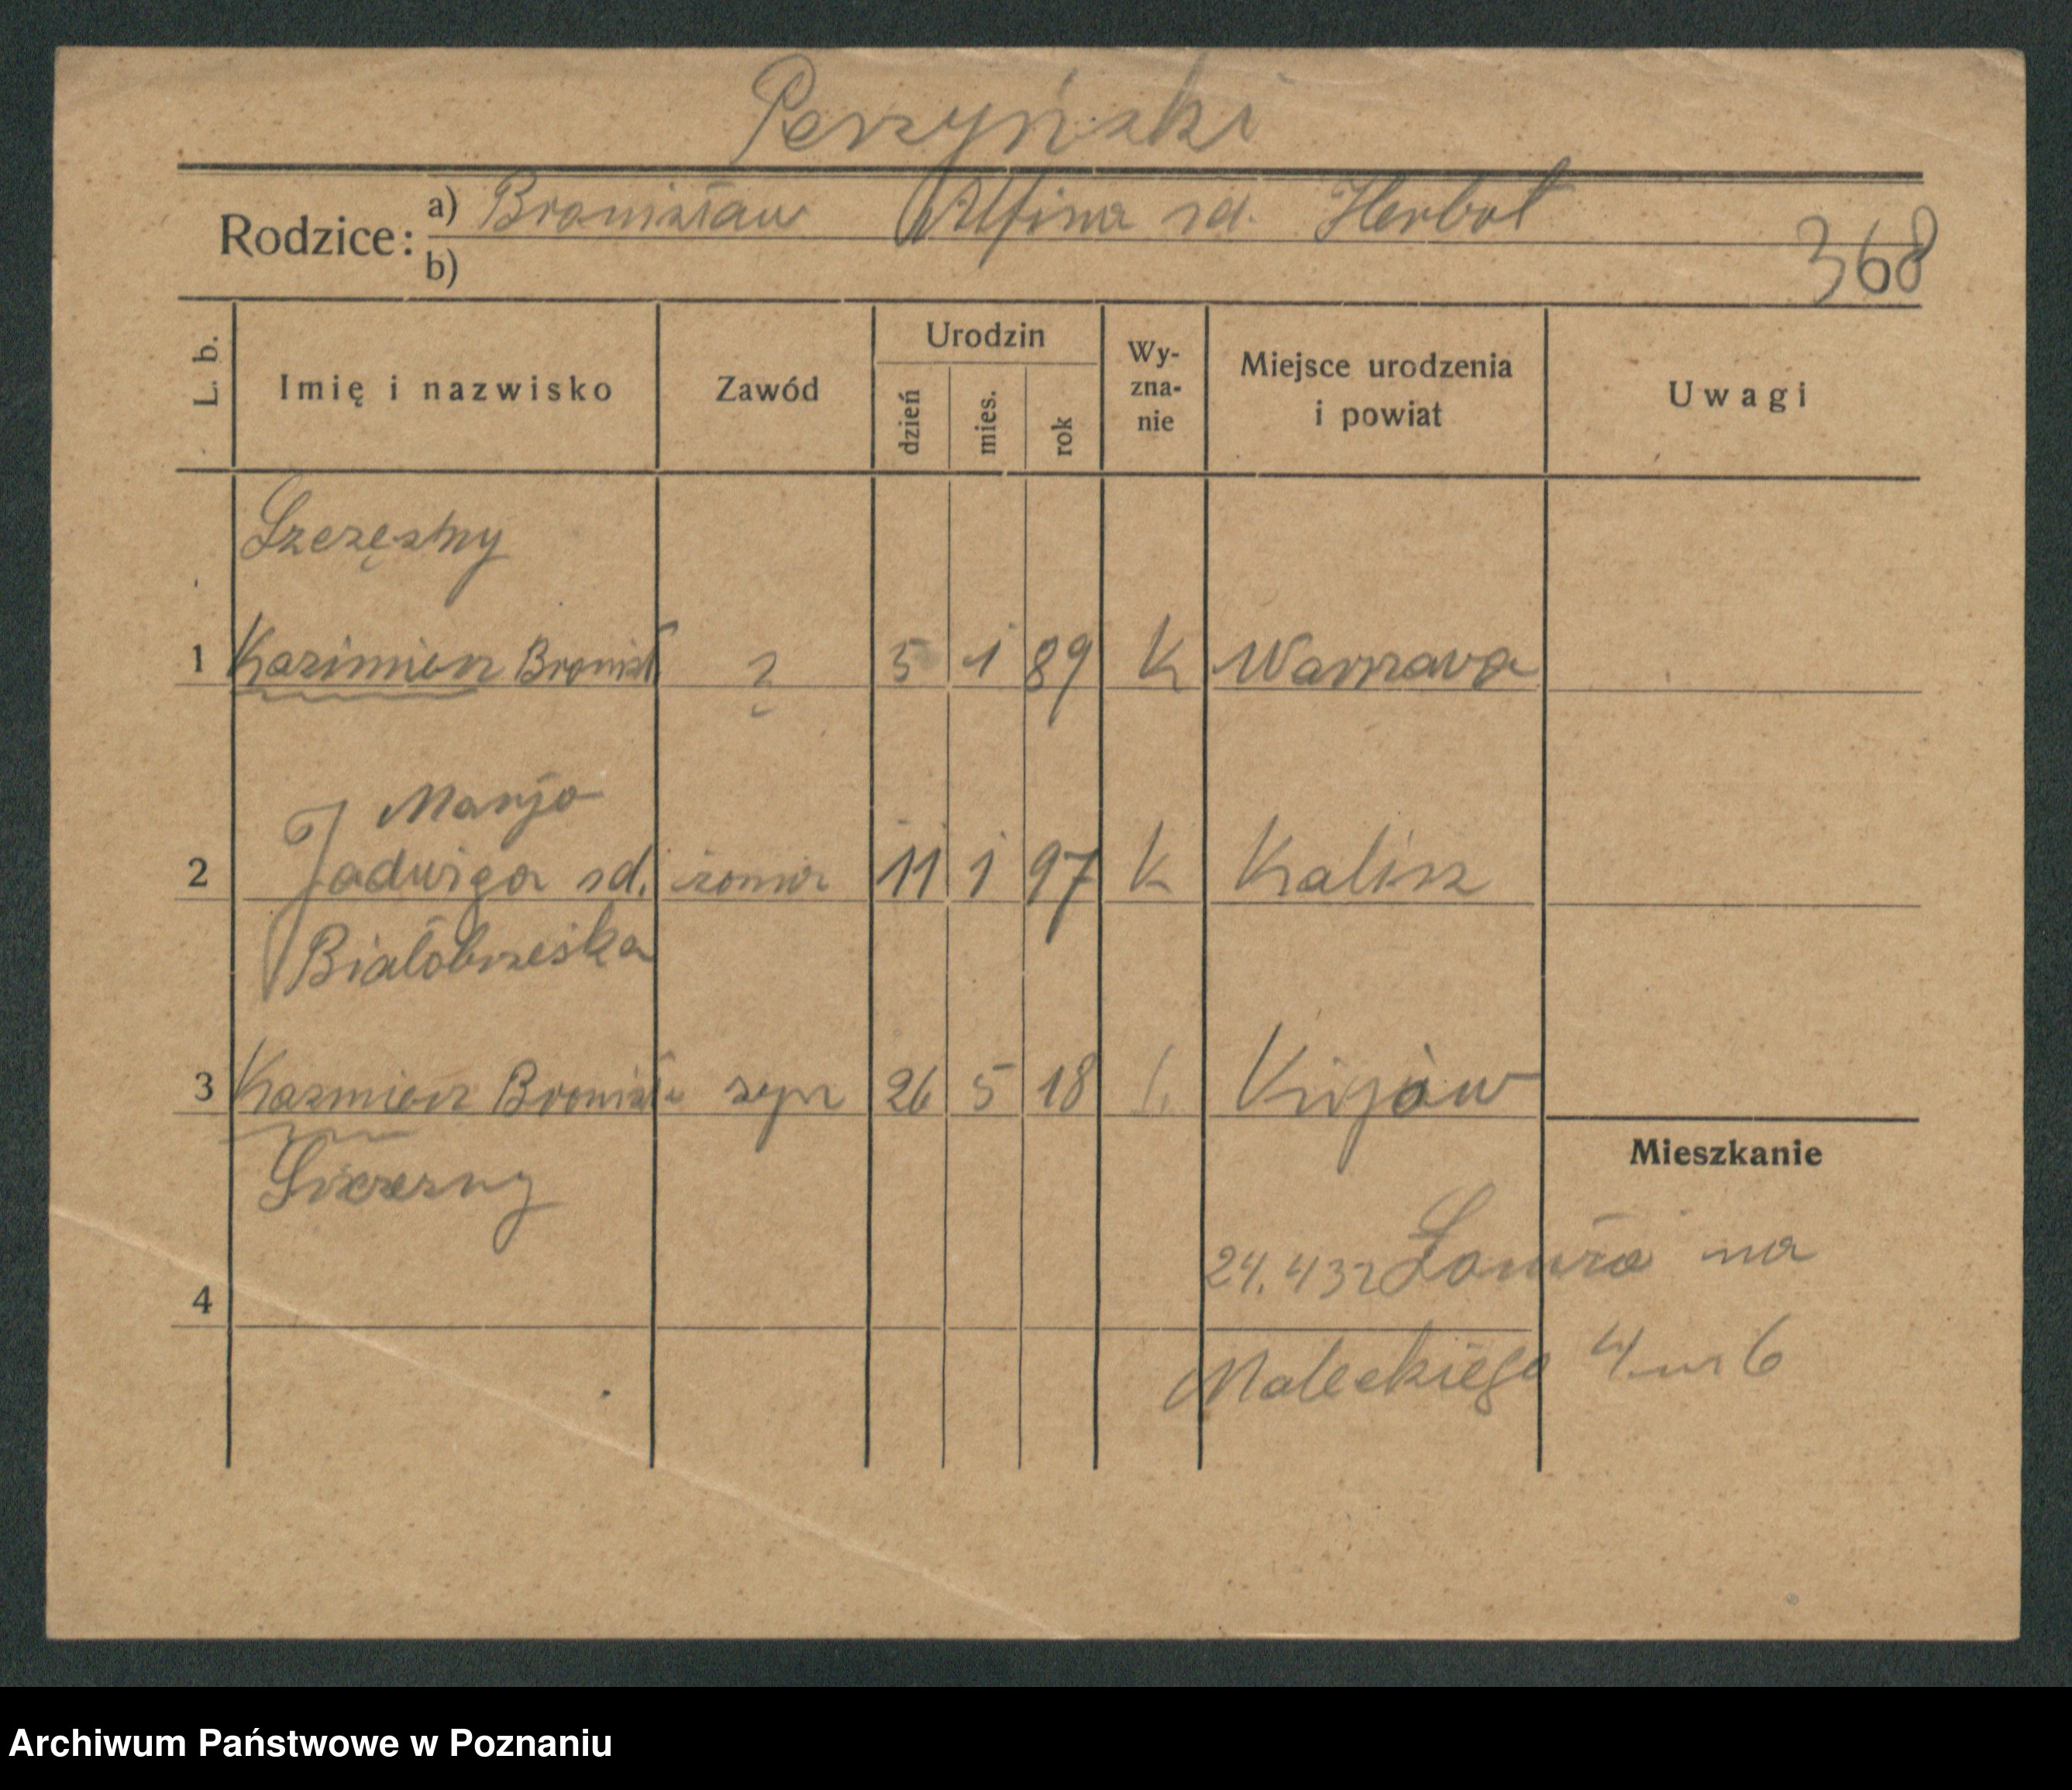 Perzyński
Rodzice: a) Bronisław Alfina zd. Herbst
b)
368
L. b. Imię i nazwisko Zawód Urodzin dzień mies. rok Wy- zna- nie Miejsce urodzenia i powiat Uwagi
Szczęsny
1 Kazimierz Bronisł ? 5 1 89 K Warszawa
Marja
2 Jadwiga zd. żona 11 1 97 K Kalisz
Białobrzeska
3 Kazmierz Bronisł syn 26 5 18 Kijów
Szczesny
Mieszkanie
24.4 32 Łomża na
4
Maleckiego 4 m 6
Archiwum Państwowe w Poznaniu